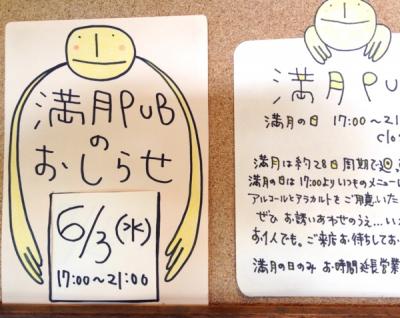 満月PUB
の
おしらせ
6/3(水)
17:00〜21:00
満月PU
満月の日 17:00〜21
clo
満月は約28日周期で週
満月の日は17:00よりいつものメニュー
アルコールとアラカルトをご用意いた
ぜひ お誘いあわせのうえ…
お1人でも。ご来店お待ちしてお
満月の日のみ お時間延長営業